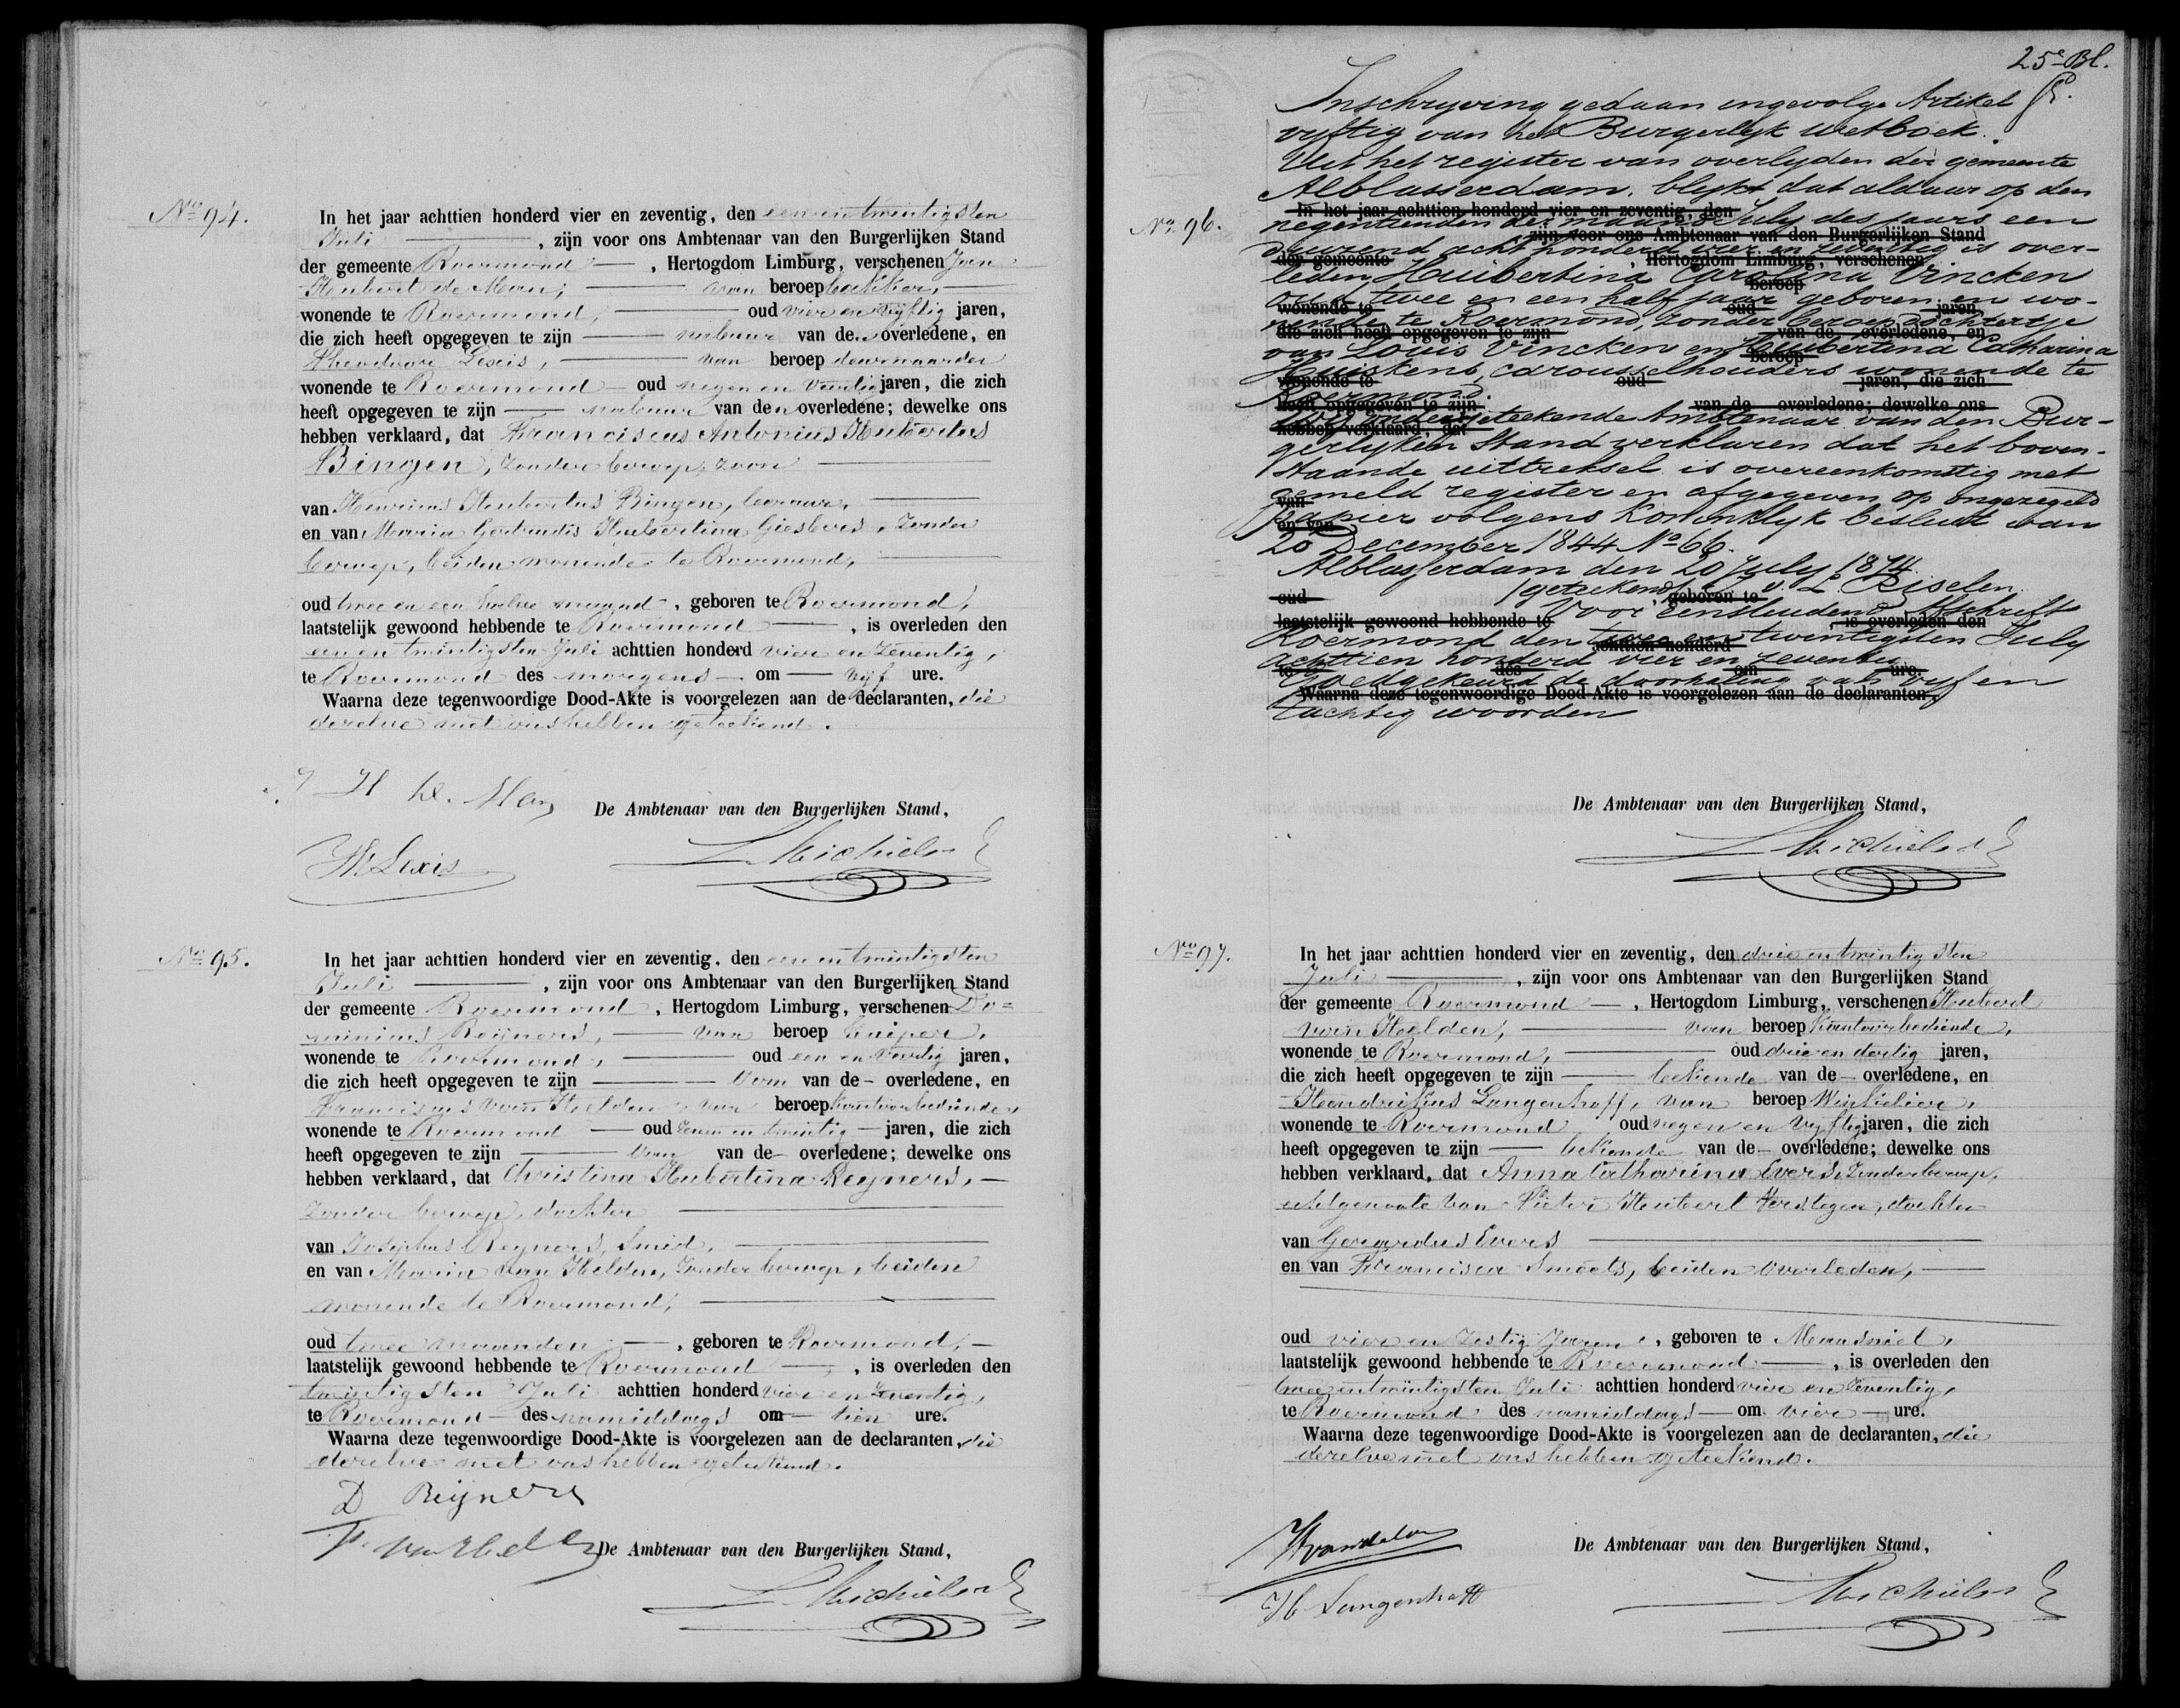 No 94.
In het jaar achttien honderd vier en zeventig, den een en twintigsten
Juli, zijn voor ons Ambtenaar van den Burgerlijken Stand
der gemeente Roermond, Hertogdom Limburg, verschenen Jan
Hubert de Man, van beroep bakker,
wonende te Roermond, oud vier en vijftig jaren,
die zich heeft opgegeven te zijn nabuur van den overledene, en
Theodoor Lexis, van beroep deurwaarder
wonende te Roermond oud negen en veertig jaren, die zich
heeft opgegeven te zijn nabuur van den overledene; dewelke ons
hebben verklaard, dat Franciscus Antonius Hubertus
Bingen, zonder beroep, zoon
van Henricus Hubertus Bingen, leeraar,
en van Maria Gertrudis Hubertina Giesbers, zonder
beroep, beiden wonende te Roermond,
oud twee en een halve maand, geboren te Roermond,
laatstelijk gewoond hebbende te Roermond, is overleden den
een en twintigsten Juli achttien honderd vier en zeventig,
te Roermond des morgens om vijf ure.
Waarna deze tegenwoordige Dood-Akte is voorgelezen aan de declaranten, die
dezelve met ons hebben geteekend.
J H de Man
De Ambtenaar van den Burgerlijken Stand,
Th Lexis
Michiels
No 95.
In het jaar achttien honderd vier en zeventig, den een en twintigsten
Juli, zijn voor ons Ambtenaar van den Burgerlijken Stand
der gemeente Roermond, Hertogdom Limburg, verschenen Do=
minicus Reijners, van beroep kuiper,
wonende te Roermond, oud een en veertig jaren,
die zich heeft opgegeven te zijn oom van de overledene, en
Franciscus van Helden van beroep kantoorbediende,
wonende te Roermond oud zeven en twintig jaren, die zich
heeft opgegeven te zijn oom van de overledene; dewelke ons
hebben verklaard, dat Christina Hubertina Reijners,
zonder beroep, dochter
van Josephus Reijners, smid,
en van Maria van Helden, zonder beroep, beiden
wonende te Roermond,
oud twee maanden, geboren te Roermond,
laatstelijk gewoond hebbende te Roermond, is overleden den
twintigsten Juli achttien honderd vier en zeventig,
te Roermond des namiddags om tien ure.
Waarna deze tegenwoordige Dood-Akte is voorgelezen aan de declaranten, die
dezelve met ons hebben geteekend.
D Reijners
F. van Helden
De Ambtenaar van den Burgerlijken Stand,
Michiels
25e Bl.
No 96.
Inschryving gedaan ingevolge Artikel
vyftig van het Burgerlyk wetboek.
Uit het register van overlyden der gemeente
Alblasserdam, blykt dat aldaar op den
In het jaar achttien honderd vier en zeventig, den
negentienden der maand July des jaars een
zijn voor ons Ambtenaar van den Burgerlijken Stand
duizend acht honderd vier en zeventig is over-
der gemeente Hertogdom Limburg, verschenen
leden, Huibertina Carolina Vincken
beroep
oud twee en een half jaar geboren en wo-
wonende te oud jaren,
nende te Roermond, zonder beroep dochtertje
die zich heeft opgegeven te zijn van de overledene, en
van Louis Vincken en Huibertina Catharina
beroep
Huiskens, carousselhouders wonende te
wonende te oud jaren, die zich
Roermond.
heeft opgegeven te zijn van de overledene; dewelke ons
Wy ondergetekende Ambtenaar van den Bur-
hebben verklaard, dat
gerlyken Stand verklaren dat het boven-
staande uittreksel is overeenkomstig met
gemeld register en afgegeven op ongezegeld
van
papier volgens Koninklyk besluit van
en van
20 December 1844 No 66.
Alblasserdam den 20 July 1874
(getekend)
oud geboren te
Voor eensluidend Afschrift
laatstelijk gewoond hebbende te, is overleden den
Roermond den twee en twintigsten July
achttien honderd
achttien honderd vier en zeventig
te des om ure.
Goedgekeurd de doorhaling van vyf en
Waarna deze tegenwoordige Dood-Akte is voorgelezen aan de declaranten,
tachtig woorden
De Ambtenaar van den Burgerlijken Stand,
Michiels
No 97.
In het jaar achttien honderd vier en zeventig, den drie en twintigsten
Juli, zijn voor ons Ambtenaar van den Burgerlijken Stand
der gemeente Roermond, Hertogdom Limburg, verschenen Hubert
van Helden, van beroep kantoorbediende,
wonende te Roermond, oud drie en dertig jaren,
die zich heeft opgegeven te zijn bekende van de overledene, en
Hendrikus Langenhoff, van beroep Winkelier,
wonende te Roermond oud negen en vijftig jaren, die zich
heeft opgegeven te zijn bekende van de overledene; dewelke ons
hebben verklaard, dat Anna Catharina Evers, zonder beroep,
echtgenoote van Pieter Hubert Verstegen, dochter
van Gerardus Evers
en van Francisca Smeets, beiden overleden,
oud vier en zestig Jaren, geboren te Maasniel,
laatstelijk gewoond hebbende te Roermond, is overleden den
twee en twintigsten Juli achttien honderd vier en zeventig,
te Roermond des namiddags om vier ure.
Waarna deze tegenwoordige Dood-Akte is voorgelezen aan de declaranten, die
dezelve met ons hebben geteekend.
De Ambtenaar van den Burgerlijken Stand,
H Langenhoff
Michiels